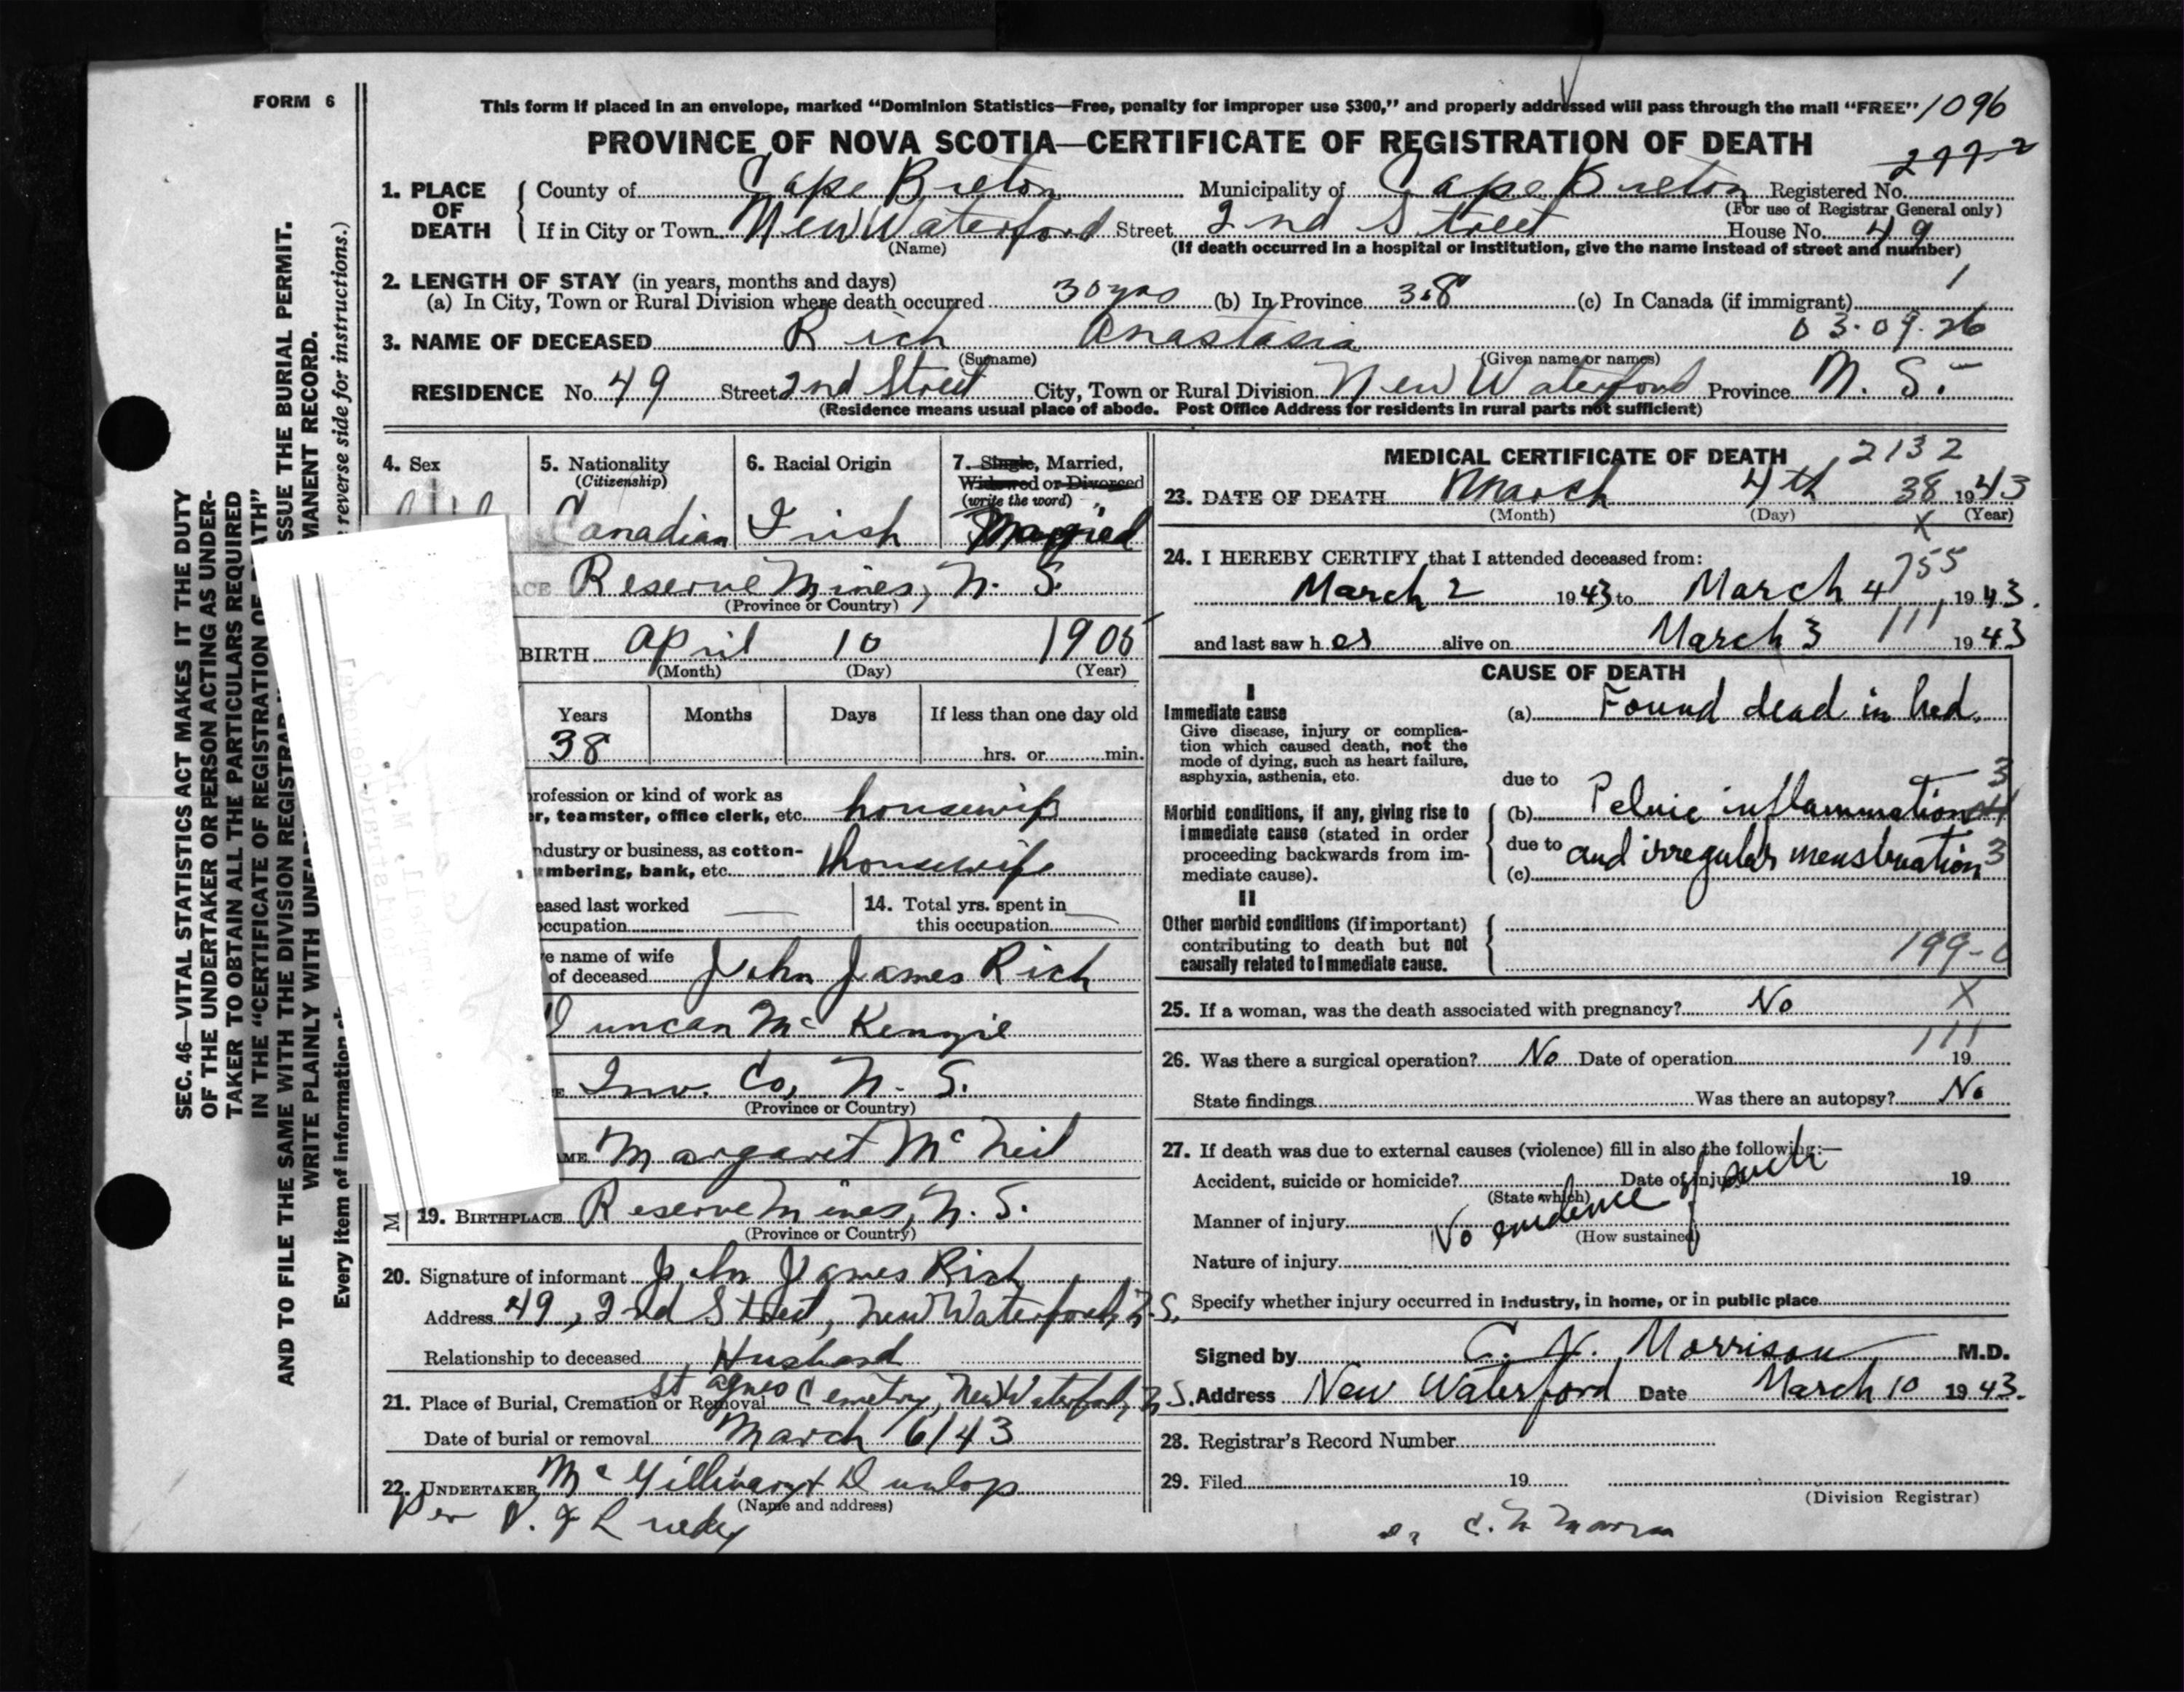 FORM 6
This form if placed in an envelope, marked "Dominion Statistics—Free, penalty for improper use $300," and properly addressed will pass through the mail "FREE" 1096
PROVINCE OF NOVA SCOTIA—CERTIFICATE OF REGISTRATION OF DEATH
1. PLACE OF DEATH { County of Cape Breton Municipality of Cape Breton Registered No.
(For use of Registrar General only)
If in City or Town New Waterford Street 2nd Street House No. 49
(Name) (If death occurred in a hospital or institution, give the name instead of street and number)
2. LENGTH OF STAY (in years, months and days) 1
(a) In City, Town or Rural Division where death occurred 30 yrs (b) In Province 38 (c) In Canada (if immigrant)
03.09.26
3. NAME OF DECEASED Rich Anastasia
(Surname) (Given name or names)
RESIDENCE No. 49 Street 2nd Street City, Town or Rural Division New Waterford Province N. S.
(Residence means usual place of abode. Post Office Address for residents in rural parts not sufficient)
4. Sex 5. Nationality 6. Racial Origin 7. Single, Married,
(Citizenship) Widowed or Divorced
(write the word)
Canadian Irish Married
ACE Reserve Mines, N. S.
(Province or Country)
BIRTH April 10 1905
(Month) (Day) (Year)
Years Months Days If less than one day old
38 hrs. or min.
rofession or kind of work as
r, teamster, office clerk, etc. housewife
ndustry or business, as cotton-
mbering, bank, etc. housewife
eased last worked 14. Total yrs. spent in
occupation this occupation
e name of wife
of deceased John James Rich
Duncan McKenzie
Inv. Co, N. S.
(Province or Country)
AME Margaret McNeil
M 19. BIRTHPLACE Reserve Mines, N. S.
(Province or Country)
20. Signature of informant John James Rich
Address 49, 2nd Street, New Waterford, N. S.
Relationship to deceased Husband
21. Place of Burial, Cremation or Removal St Agnes Cemetry, New Waterford, N S.
Date of burial or removal March 6/43
22. UNDERTAKER McGillivary & Dunlop
(Name and address)
Per
MEDICAL CERTIFICATE OF DEATH 2132
23. DATE OF DEATH March 4th 38 1943
(Month) (Day) X (Year)
24. I HEREBY CERTIFY that I attended deceased from: 755
March 2 1943 to March 4, 1943.
and last saw her alive on March 3 111 1943
CAUSE OF DEATH
I
Immediate cause (a) Found dead in bed.
Give disease, injury or complica-
tion which caused death, not the
mode of dying, such as heart failure,
asphyxia, asthenia, etc. due to 3
Morbid conditions, if any, giving rise to (b) Pelvic inflammation
immediate cause (stated in order
proceeding backwards from im- due to and irregular menstruation 3
mediate cause). (c)
II
Other morbid conditions (if important)
contributing to death but not
causally related to immediate cause. 199-0
25. If a woman, was the death associated with pregnancy? No X
111
26. Was there a surgical operation? No Date of operation 19
State findings Was there an autopsy? No
27. If death was due to external causes (violence) fill in also the following:—
Accident, suicide or homicide? Date of injury 19
(State which)
Manner of injury No evidence of such
(How sustained)
Nature of injury
Specify whether injury occurred in industry, in home, or in public place
Signed by C. N. Morrison M.D.
Address New Waterford Date March 10 1943.
28. Registrar's Record Number
29. Filed 19
(Division Registrar)
SEC. 46—VITAL STATISTICS ACT MAKES IT THE DUTY
OF THE UNDERTAKER OR PERSON ACTING AS UNDER-
TAKER TO OBTAIN ALL THE PARTICULARS REQUIRED
IN THE "CERTIFICATE OF REGISTRATION OF ATH"
AND TO FILE THE SAME WITH THE DIVISION REGISTRAR SSUE THE BURIAL PERMIT.
WRITE PLAINLY WITH UNFA MANENT RECORD.
Every item of information reverse side for instructions.)